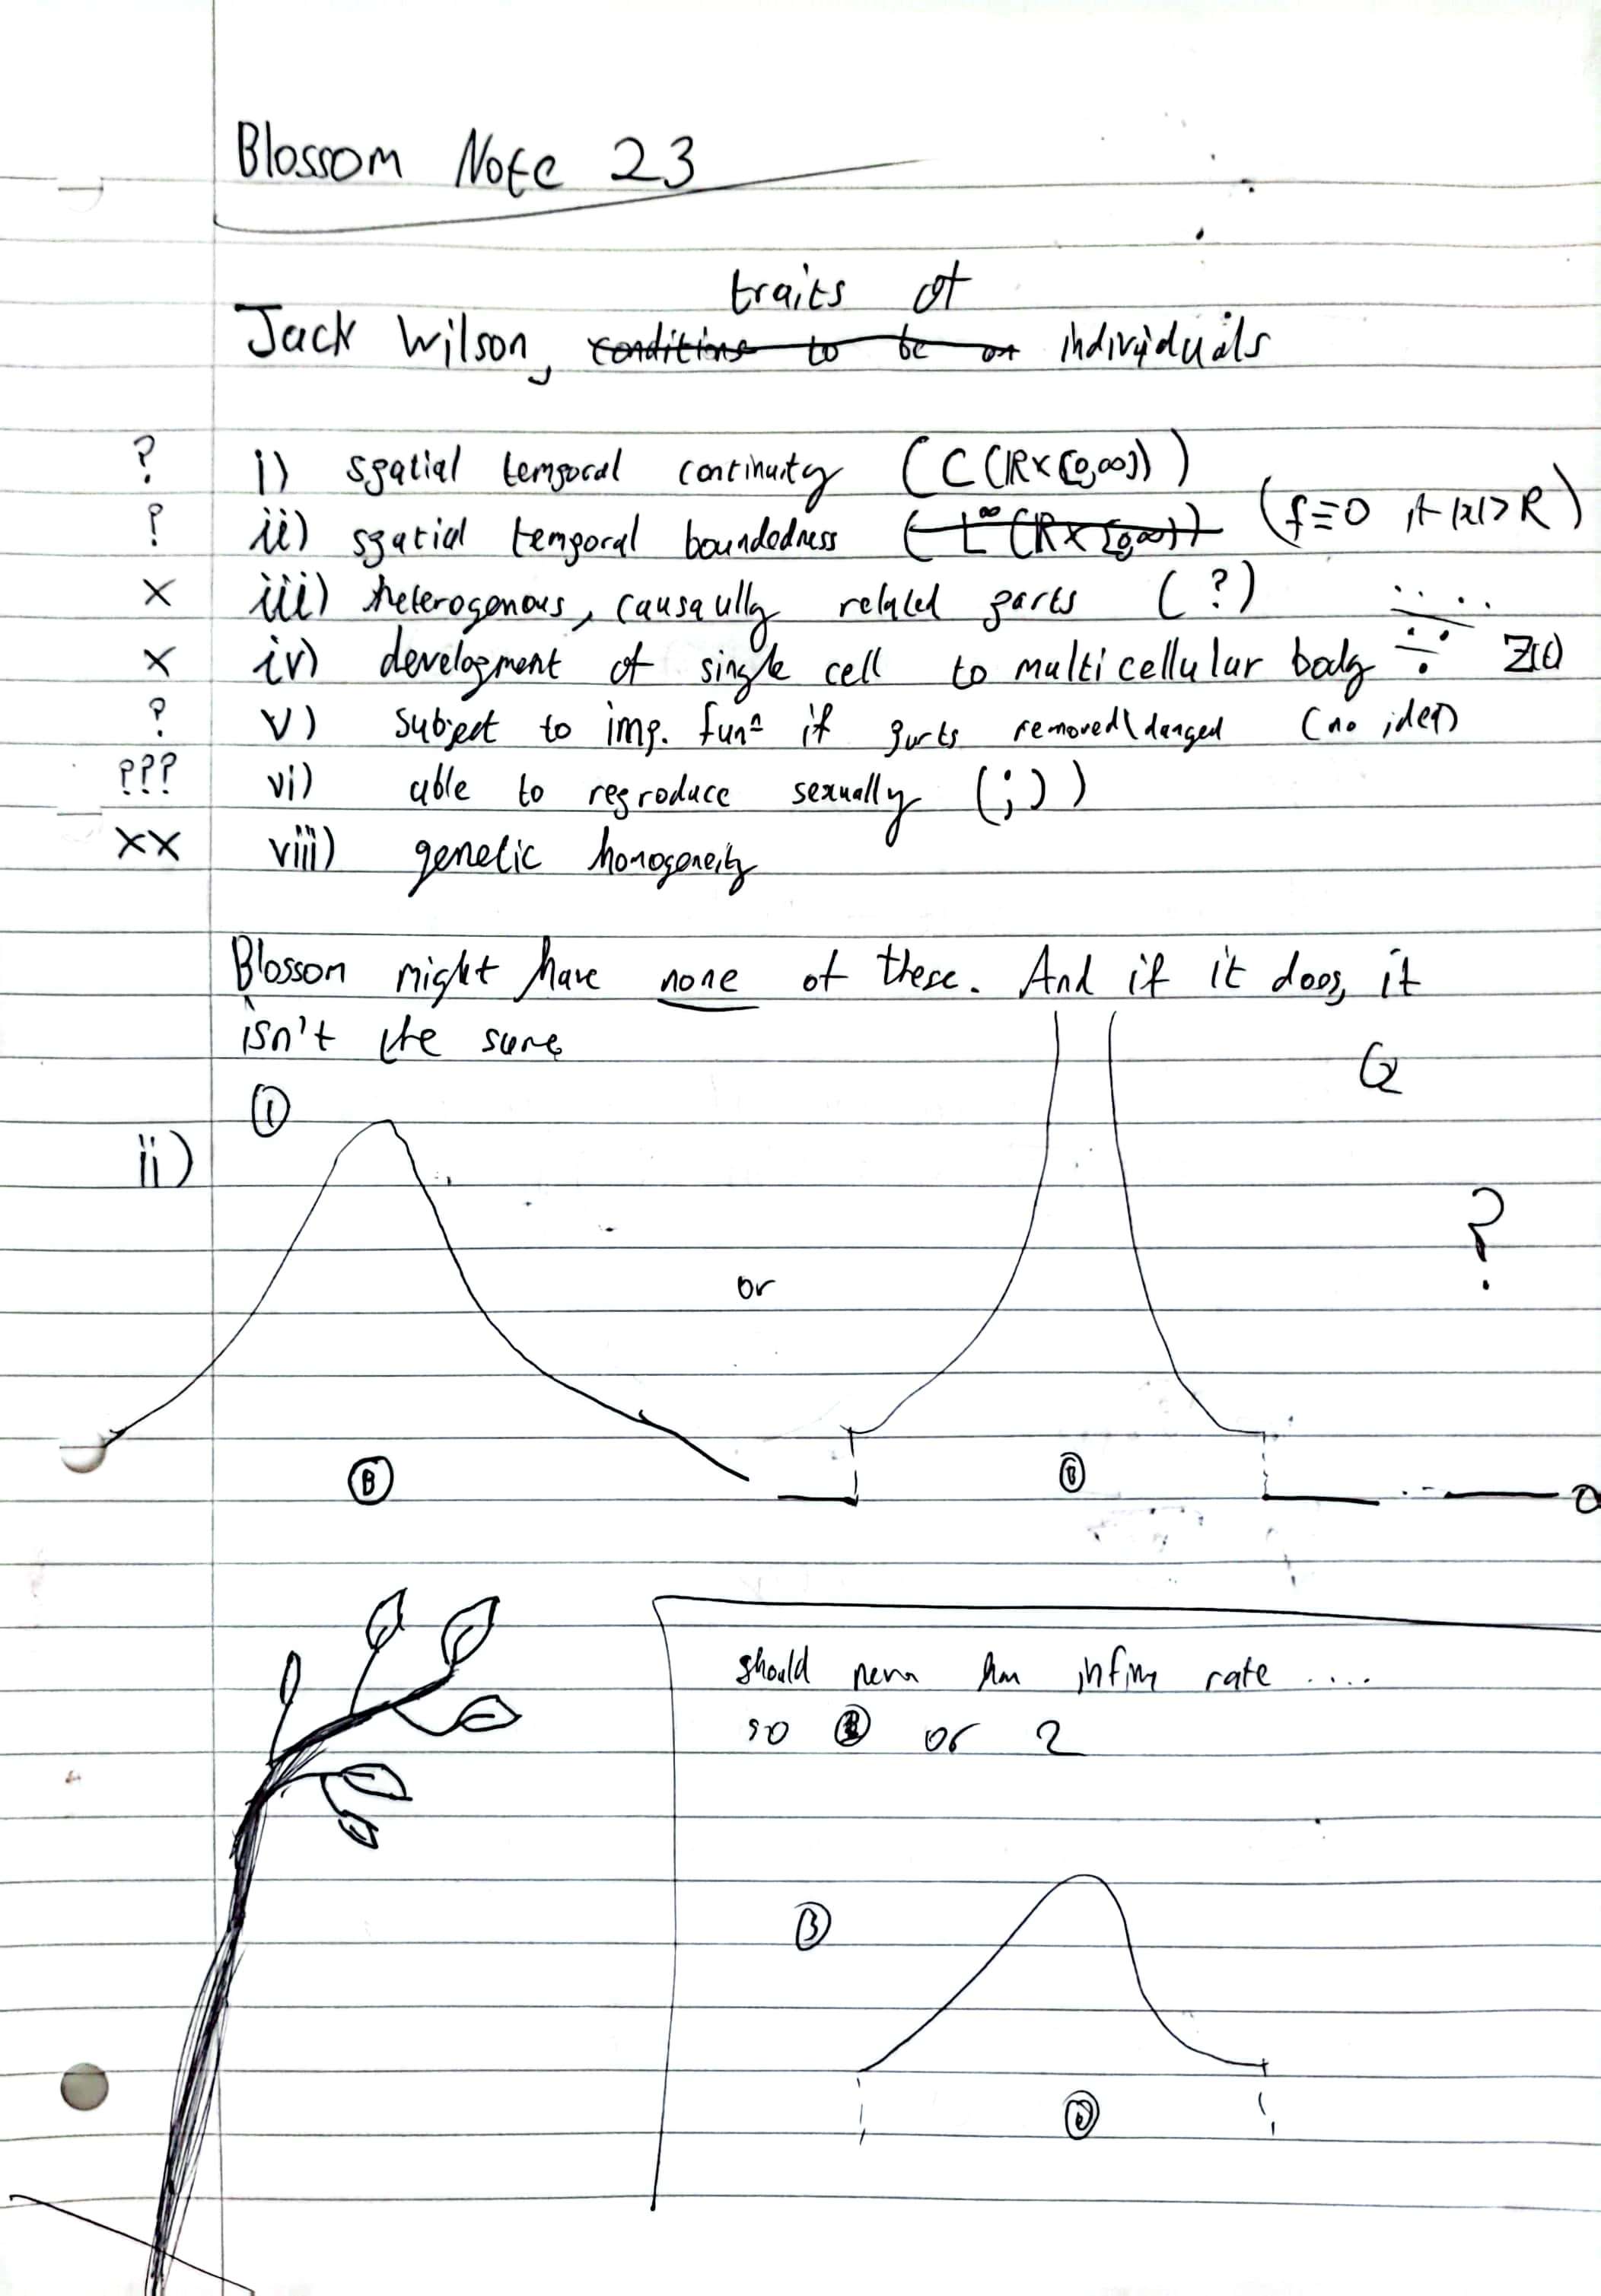 Blossom Note 23
traits of
Jack Wilson, conditions to be an individuals
? i) spatial temporal continuity (C(ℝ×[0,∞)))
? ii) spatial temporal boundedness (L^∞(ℝ×[0,∞))) (f≡0 if |x|>R)
× iii) heterogenous, causaully related parts (?)
× iv) development of single cell to multicellular body Z(t)
? v) subject to imp. funⁿ if parts removed/damged (no idea)
??? vi) able to reproduce sexually (;))
×× viii) genetic homogeneity
Blossom might have none of these. And if it does, it
isn't the same
①
ii)
or
?
Ⓑ
Ⓑ
0
should never have infinite rate ....
so or 2